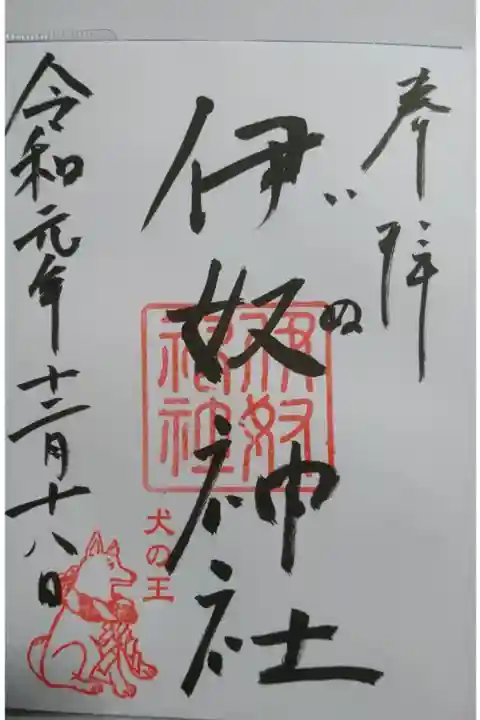 奉拝
伊奴神社
いぬ
伊奴
神社
犬の王
令和元年十二月十八日